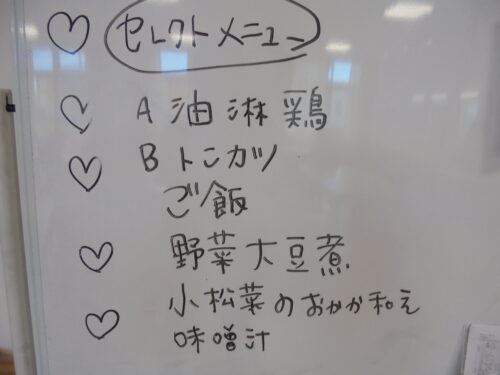 セレクトメニュー
A 油淋鶏
B トンカツ
ご飯
野菜大豆煮
小松菜のおかか和え
味噌汁